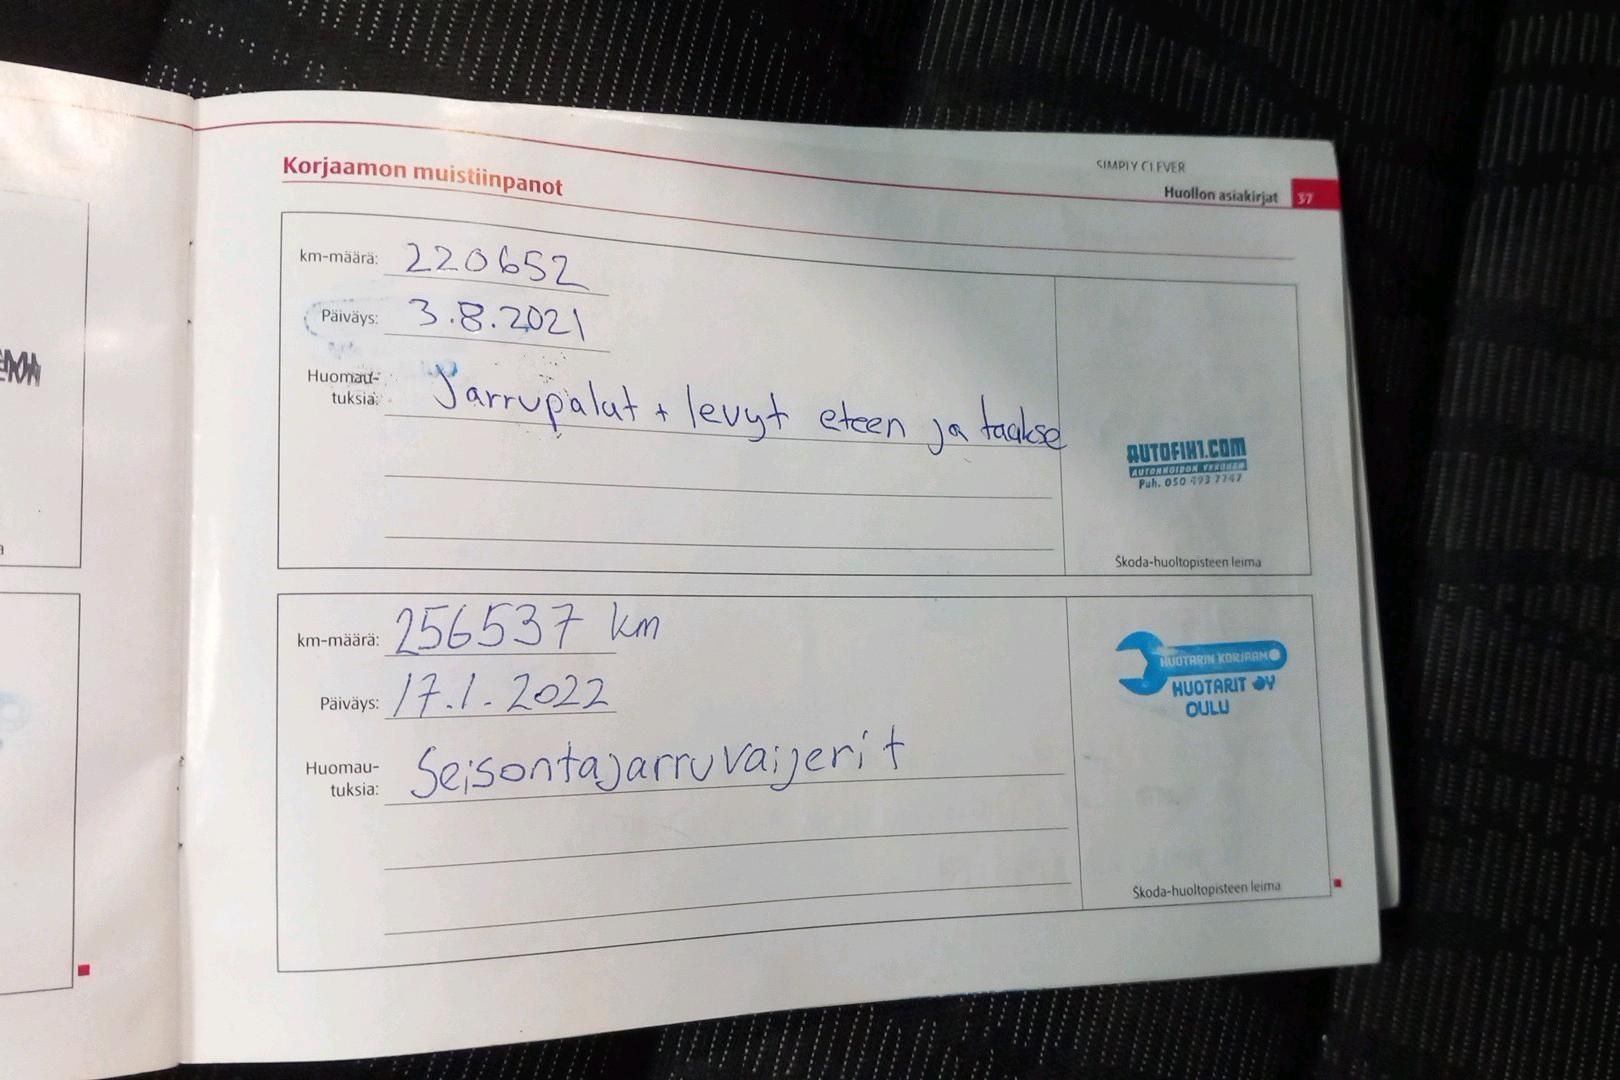 SIMPLY CLEVER
Korjaamon muistiinpanot
Huollon asiakirjat 37
km-määrä: 220652
Päiväys: 3.8.2021
Huomau-
tuksia: Jarrupalat + levyt eteen ja taakse
AUTOFIX1.COM
Puh. 050 493 7747
Škoda-huoltopisteen leima
km-määrä: 256537 km
Päiväys: 17.1.2022
Huomau-
tuksia: Seisontajarruvaijerit
HUOTARIN KORJAAMO
HUOTARIT OY
OULU
Škoda-huoltopisteen leima